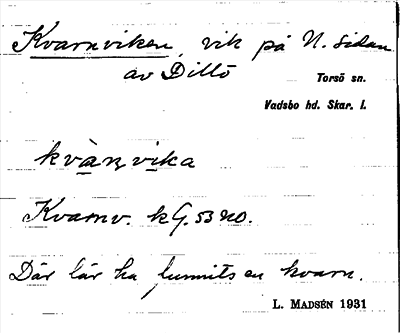 Kvarnviken, vik på N. sidan
av Dillö
Torsö sn.
Vadsbo hd. Skar. l.
kvànvika
Kvarnv. kG. 53 no.
Där lär ha funnits en kvarn.
L. MADSÉN 1931